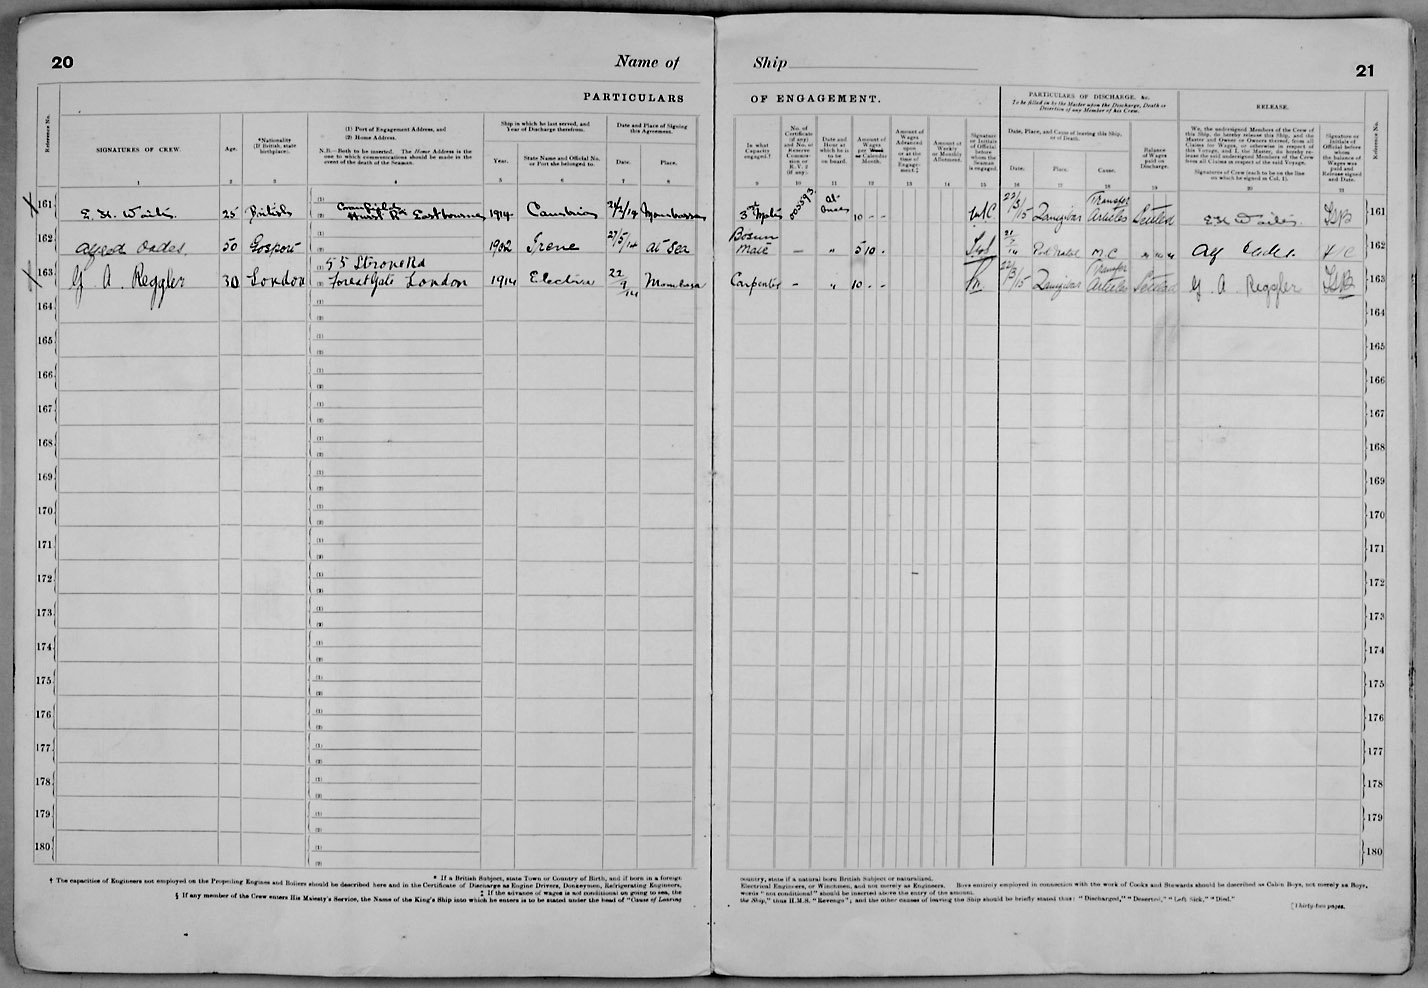 20
Name of
Ship
21
PARTICULARS
OF ENGAGEMENT.
PARTICULARS OF DISCHARGE, &c.
To be filled in by the Master upon the Discharge, Death or
Desertion of any Member of his Crew.
RELEASE.
Reference No.
SIGNATURES OF CREW.
Age.
*Nationality
(If British, state
birthplace).
(1) Port of Engagement Address, and
(2) Home Address.
N.B.—Both to be inserted. The Home Address is the
one to which communications should be made in the
event of the death of the Seaman.
Ship in which he last served, and
Year of Discharge therefrom.
Year.
State Name and Official No.
or Port she belonged to.
Date and Place of Signing
this Agreement.
Date.
Place.
In what
Capacity
engaged.†
No. of
Certificate
(if any)
and No. or
Reserve
Commis-
sion or
R.V. 2
(if any).
Date and
Hour at
which he is
to be
on board.
Amount of
Wages
per Week
or Calendar
Month.
Amount of
Wages
Advanced
upon
or at the
time of
Engage-
ment.‡
Amount of
Weekly
or Monthly
Allotment.
Signature
or Initials
of Official
before
whom the
Seaman
is engaged.
Date, Place, and Cause of leaving this Ship,
or of Death.
Date.
Place.
Cause.
Balance
of Wages
paid on
Discharge.
We, the undersigned Members of the Crew of
this Ship, do hereby release this Ship, and the
Master and Owner or Owners thereof, from all
Claims for Wages, or otherwise in respect of
this Voyage, and I, the Master, do hereby re-
lease the said undersigned Members of the Crew
from all Claims in respect of the said Voyage.
Signatures of Crew (each to be on the line
on which he signed in Col. 1).
Signature or
Initials of
Official before
whom
the balance of
Wages was
paid and
Release signed
and Date.
Reference No.
1 2 3 4 5 6 7 8 9 10 11 12 13 14 15 16 17 18 19 20 21
161 E. H. Waites. 25 British Hurst Rd Eastbourne 1914 Cambria 24/2/14 Mombassa 3rd Mate 003593 At once 10 - - 22/3/15 Zanzibar Transfer Articles Settled E H Waites. 161
162 Alfred Oades. 50 Gosport 1902 Irene 27/5/14 At Sea Bosun Mate — " 5 10 - Port Natal M C Alf Oades. 162
163 G. A. Reggler 30 London 55 Strone Rd Forest Gate London 1914 Electra 22/9/14 Mombasa Carpenter - " 10 - - 22/3/15 Zanzibar Transfer Articles Settled G. A. Reggler 163
164 164
165 165
166 166
167 167
168 168
169 169
170 170
171 171
172 172
173 173
174 174
175 175
176 176
177 177
178 178
179 179
180 180
* If a British Subject, state Town or Country of Birth, and if born in a foreign
country, state if a natural born British Subject or naturalized.
† The capacities of Engineers not employed on the Propelling Engines and Boilers should be described here and in the Certificate of Discharge as Engine Drivers, Donkeymen, Refrigerating Engineers,
Electrical Engineers, or Winchmen, and not merely as Engineers. Boys entirely employed in connection with the work of Cooks and Stewards should be described as Cabin Boys, not merely as Boys.
‡ If the advance of wages is not conditional on going to sea, the
words "not conditional" should be inserted above the entry of the amount.
§ If any member of the Crew enters His Majesty's Service, the Name of the King's Ship into which he enters is to be stated under the head of "Cause of Leaving
the Ship," thus H.M.S. "Revenge"; and the other causes of leaving the Ship should be briefly stated thus: "Discharged," "Deserted," "Left Sick," "Died."
[Thirty-two pages.